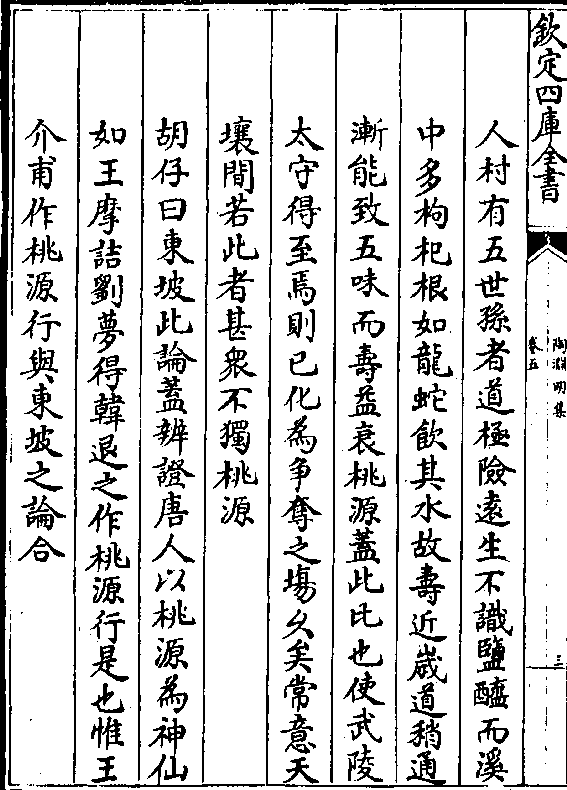 欽定四庫全書
陶淵明集
卷五
三
人村有五世孫者道極險遠生不識鹽醯而溪
中多枸杞根如龍蛇飲其水故壽近嵗道稍通
漸能致五味而壽益衰桃源蓋此比也使武陵
太守得至焉則已化為争奪之塲久矣常意天
壤間若此者甚衆不獨桃源
胡仔曰東坡此論蓋辨證唐人以桃源為神仙
如王摩詰劉夢得韓退之作桃源行是也惟王
介甫作桃源行與東坡之論合